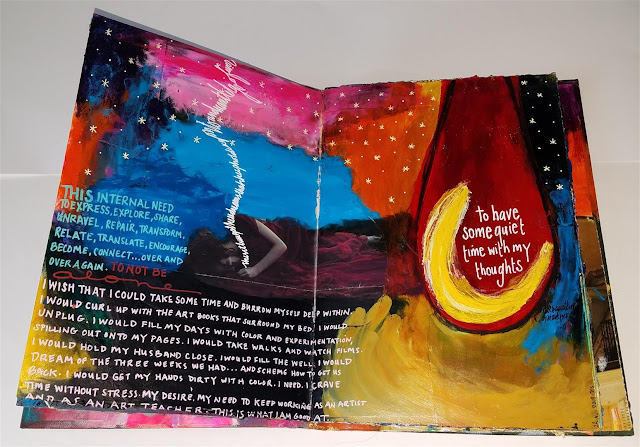 THIS INTERNAL NEED
TO EXPRESS, EXPLORE, SHARE,
UNRAVEL, REPAIR, TRANSFORM,
RELATE, TRANSLATE, ENCOURAGE,
BECOME, CONNECT... OVER AND
OVER AGAIN. TO NOT BE
alone.
I WISH THAT I COULD TAKE SOME TIME AND BURROW MYSELF DEEP WITHIN.
I WOULD CURL UP WITH THE ART BOOKS THAT SURROUND MY BED. I WOULD
UNPLUG. I WOULD FILL MY DAYS WITH COLOR AND EXPERIMENTATION,
SPILLING OUT ONTO MY PAGES. I WOULD TAKE WALKS AND WATCH FILMS.
I WOULD HOLD MY HUSBAND CLOSE. I WOULD FILL THE WELL. I WOULD
DREAM OF THE THREE WEEKS WE HAD... AND SCHEME HOW TO GET US
BACK. I WOULD GET MY HANDS DIRTY WITH COLOR. I NEED. I CRAVE
TIME WITHOUT STRESS. MY DESIRE. MY NEED TO KEEP WORKING AS AN ARTIST
AND AS AN ART TEACHER. THIS IS WHAT I AM GOOD AT...
to have
some quiet
time with my
thoughts